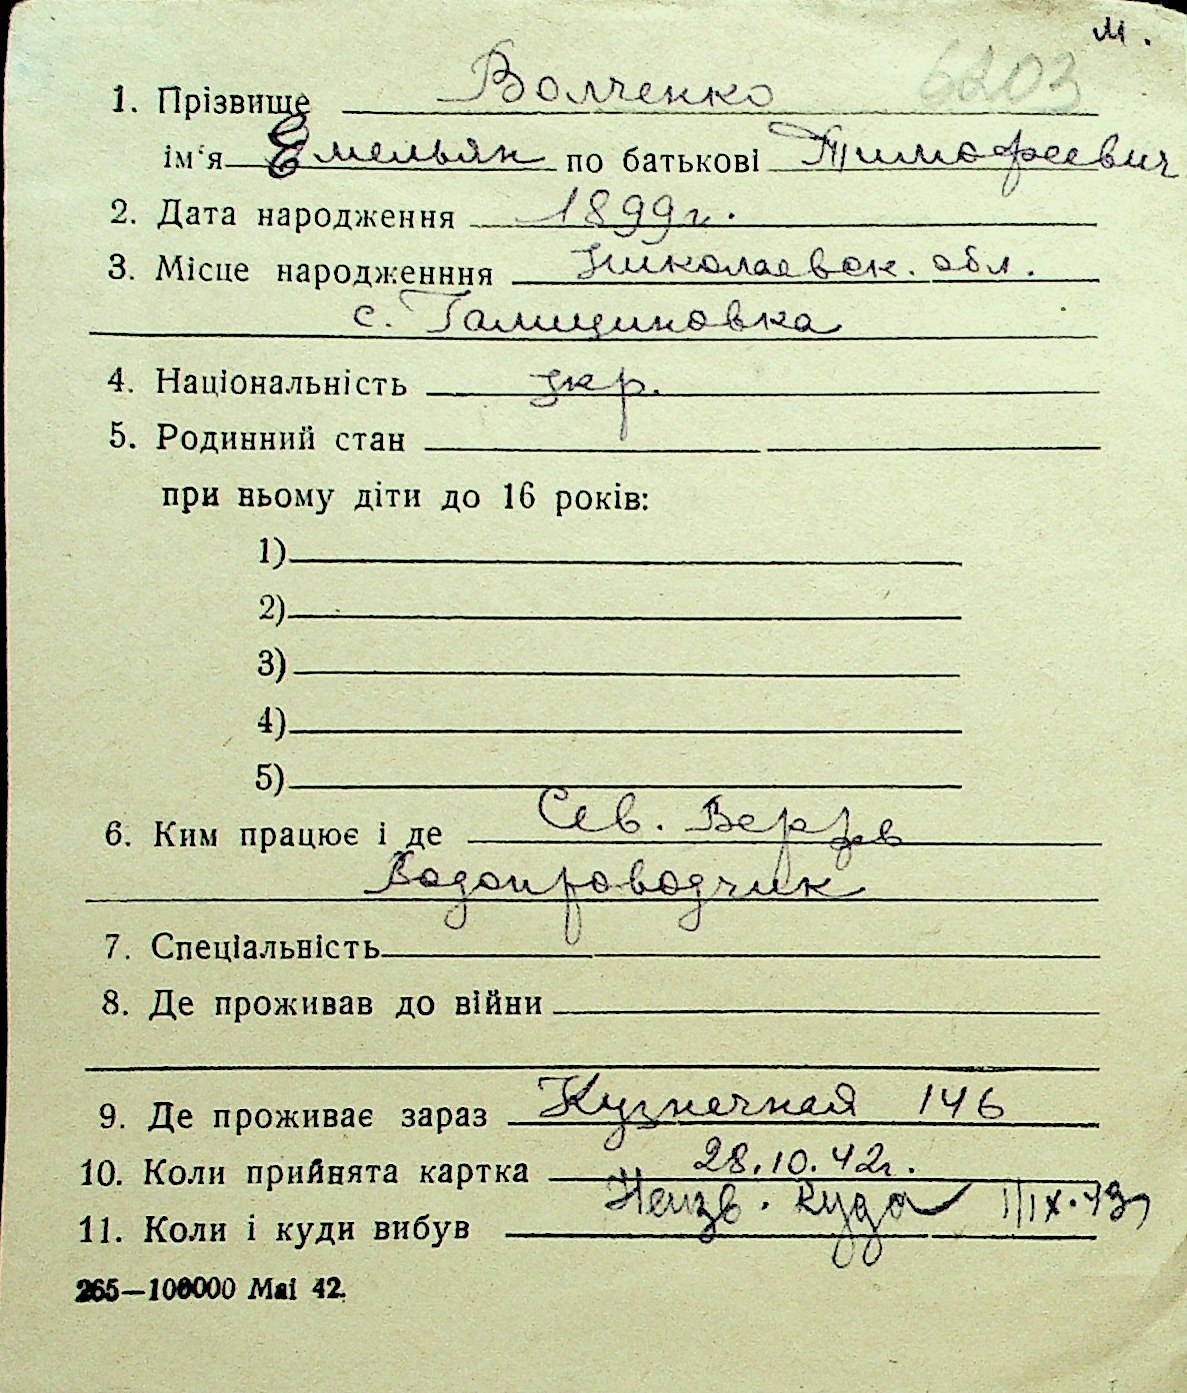 м.
1. Прізвище Волченко 6203
ім‘я Емельян по батькові Тимофеевич
2. Дата народження 1899г.
3. Місце народженння Николаевск. обл.
с. Галициновка
4. Національність укр.
5. Родинний стан
при ньому діти до 16 років:
1)
2)
3)
4)
5)
6. Ким працює і де Сев. Верфь
Водопроводчик
7. Спеціальність
8. Де проживав до війни
9. Де проживає зараз Кузнечная 146
10. Коли прийнята картка 28.10.42г.
11. Коли і куди вибув Неизв. куда 1/IX.43г
265—100000 Маі 42.